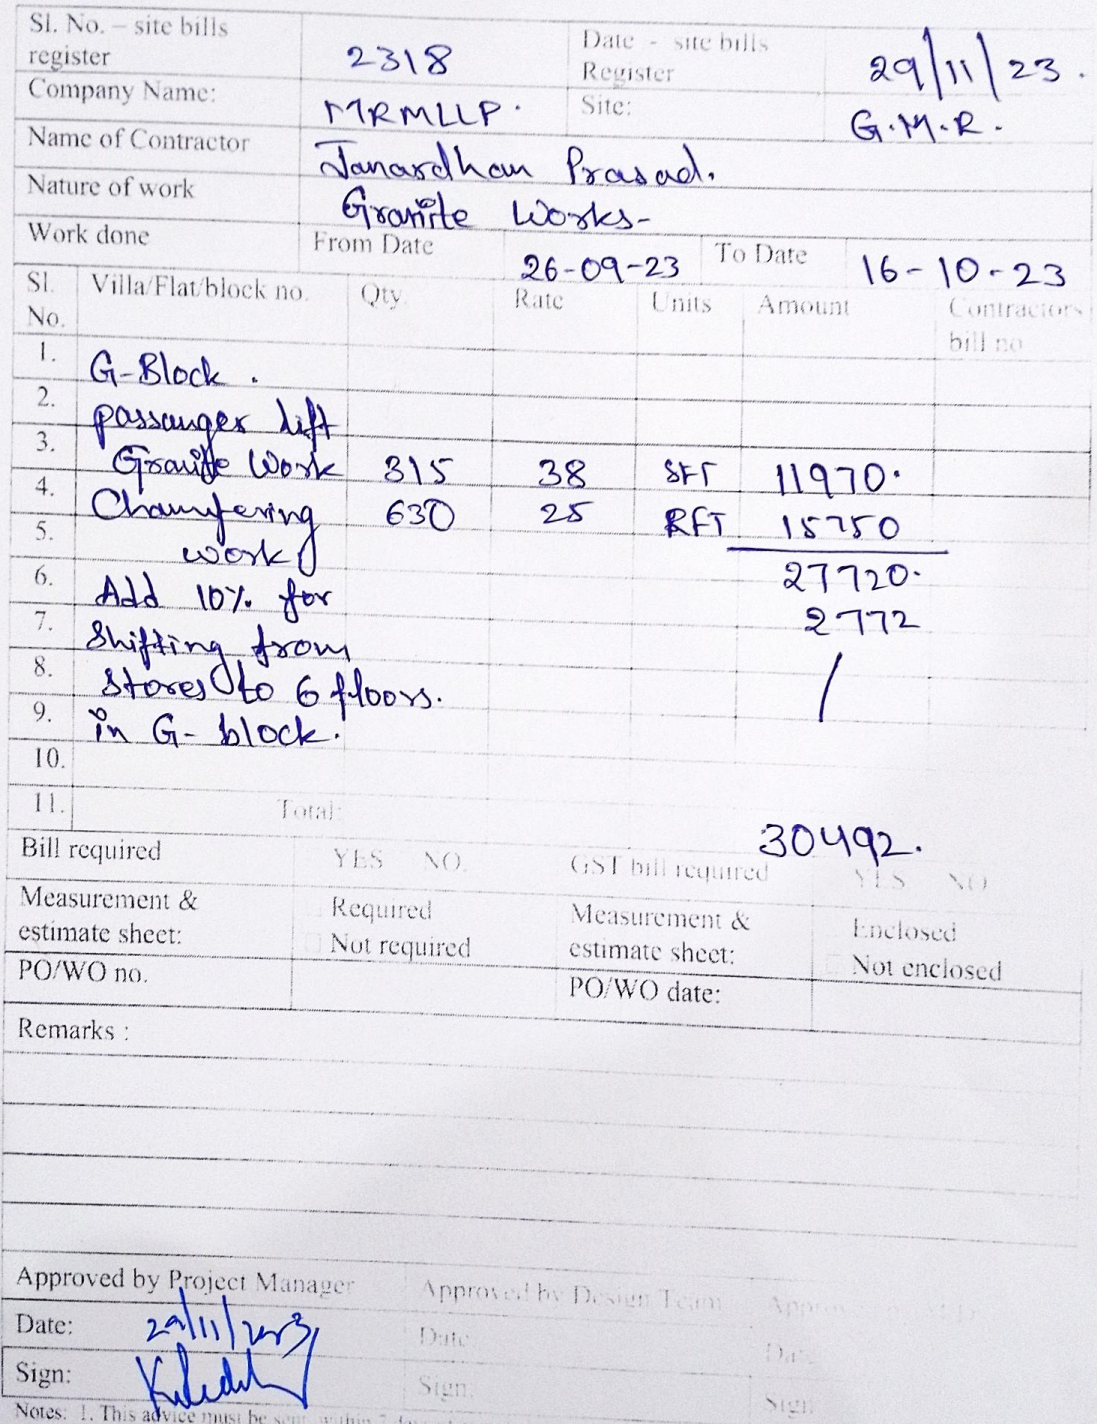 Sl. No. – site bills register 2318 Date - site bills Register 29/11/23.
Company Name: MRMLLP. Site: G.M.R.
Name of Contractor Janardhan Prasad.
Nature of work Granite Works-
Work done From Date 26-09-23 To Date 16-10-23
Sl. No. Villa/Flat/block no. Qty. Rate Units Amount Contractors bill no
1. G-Block.
2. passanger lift
3. Granite Work 315 38 SFT 11970.
4. Chamfering 630 25 RFT 15750
5. work
6. Add 10% for 27720.
7. Shifting from 2772
8. Stores to 6 floors. /
9. in G- block.
10.
11. Total: 30492.
Bill required YES NO. GST bill required YES NO
Measurement & estimate sheet: Required Not required Measurement & estimate sheet: Enclosed Not enclosed
PO/WO no. PO/WO date:
Remarks :
Approved by Project Manager Approved by Design Team
Date: 29/11/2023 Date:
Sign: Sign: Sign
Notes: 1. This advice must be sent within 7